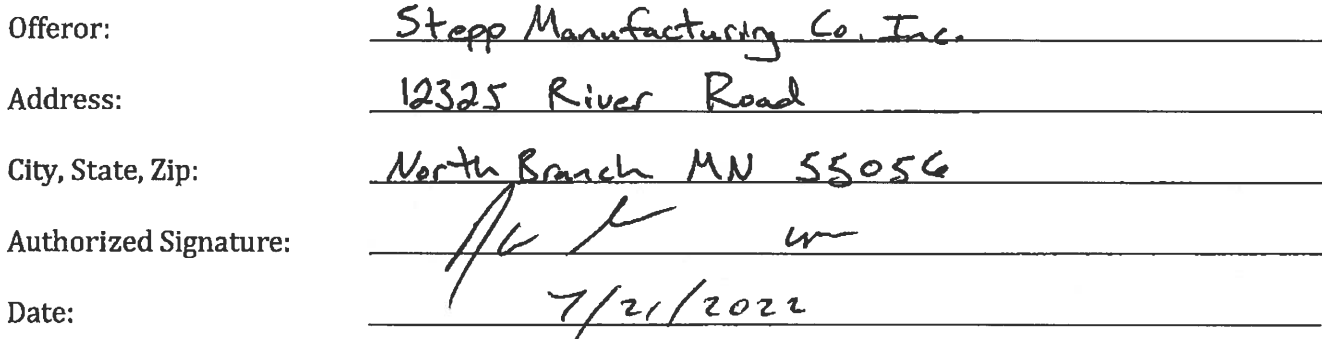 Offeror: Stepp Manufacturing Co. Inc.
Address: 12325 River Road
City, State, Zip: North Branch MN 55056
Authorized Signature:
Date: 7/21/2022